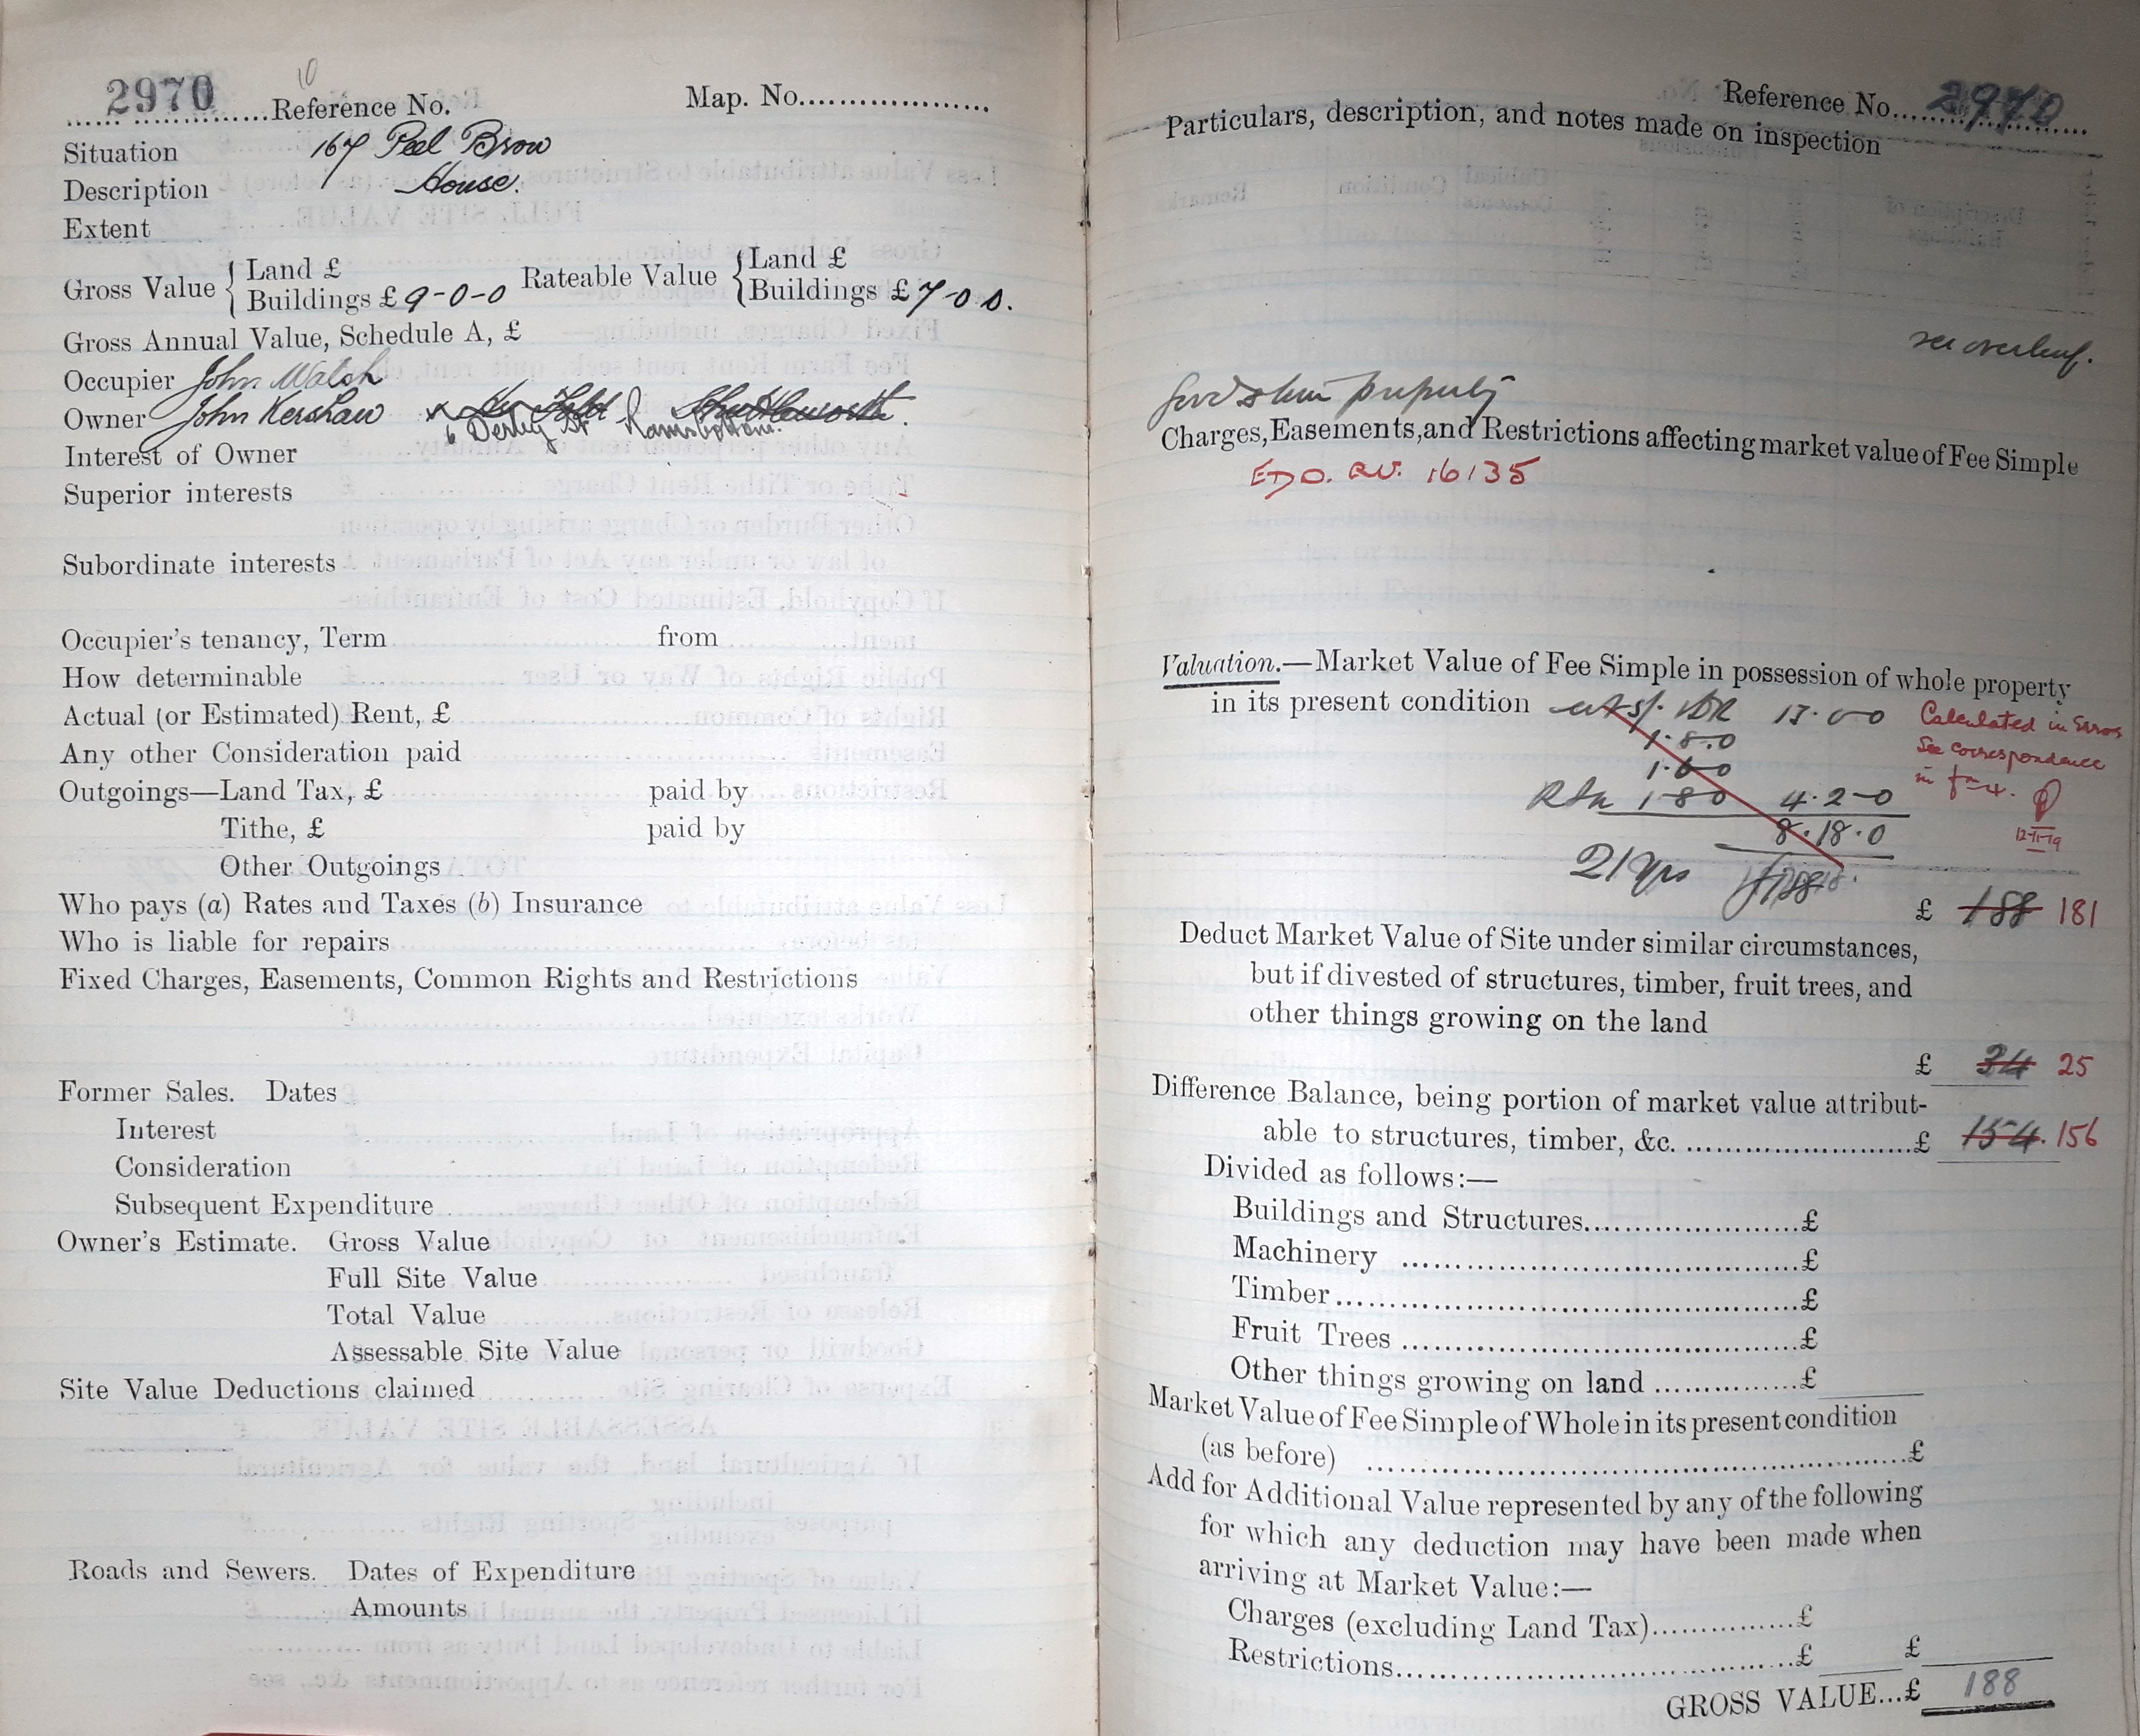 2970 Reference No. Map. No.
10
Situation 167 Peel Brow
Description House.
Extent
Gross Value { Land £ Rateable Value { Land £
Buildings £ 9-0-0 Buildings £ 7-0 0.
Gross Annual Value, Schedule A, £
Occupier John Walsh
Owner John Kershaw
6 Derby St Ramsbottom.
Interest of Owner
Superior interests
Subordinate interests
Occupier's tenancy, Term from
How determinable
Actual (or Estimated) Rent, £
Any other Consideration paid
Outgoings—Land Tax, £ paid by
Tithe, £ paid by
Other Outgoings
Who pays (a) Rates and Taxes (b) Insurance
Who is liable for repairs
Fixed Charges, Easements, Common Rights and Restrictions
Former Sales. Dates
Interest
Consideration
Subsequent Expenditure
Owner's Estimate. Gross Value
Full Site Value
Total Value
Assessable Site Value
Site Value Deductions claimed
Roads and Sewers. Dates of Expenditure
Amounts
Reference No. 2970
Particulars, description, and notes made on inspection
see overleaf.
Good stone property
Charges, Easements, and Restrictions affecting market value of Fee Simple
EDO. RV. 16135
Valuation.—Market Value of Fee Simple in possession of whole property
in its present condition 13.0.0
Calculated in Error
See correspondence
in
1.8.0
1.6.0
1.8.0 4.2.0
8.18.0
12-11-19
21 yrs
£ 188 181
Deduct Market Value of Site under similar circumstances,
but if divested of structures, timber, fruit trees, and
other things growing on the land
£ 34 25
Difference Balance, being portion of market value attribut-
able to structures, timber, &c. £ 154. 156
Divided as follows:—
Buildings and Structures £
Machinery £
Timber £
Fruit Trees £
Other things growing on land £
Market Value of Fee Simple of Whole in its present condition
(as before) £
Add for Additional Value represented by any of the following
for which any deduction may have been made when
arriving at Market Value:—
Charges (excluding Land Tax) £
Restrictions £ £
GROSS VALUE...£ 188